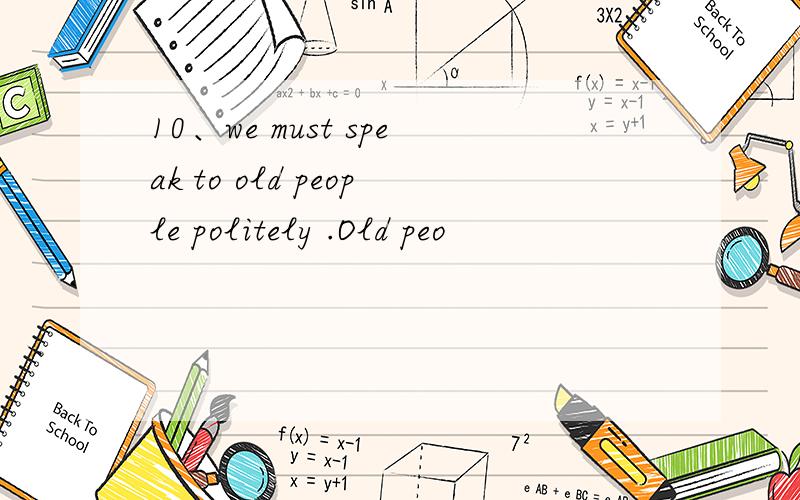 sin A
3X2
Back To
School
C
ax2 + bx +c = 0
x
α
f(x) = x-1
y = x-1
x = y+1
10、we must spe
ak to old peop
le politely .Old peo
Back To
School
f(x) = x-1
y = x-1
x = y+1
7²
e AB + e BC = e